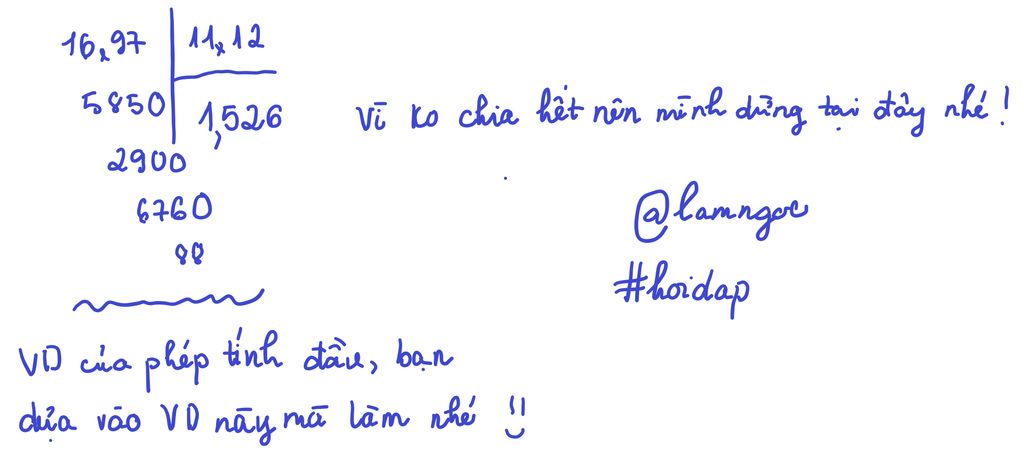 16,97 11,12
5850 1,526
2900
6760
88
Vì ko chia hết nên mình dừng tại đây nhé!
@lamngoc
#hoidap
VD của phép tính đầu, bạn
dựa vào VD này mà làm nhé !!